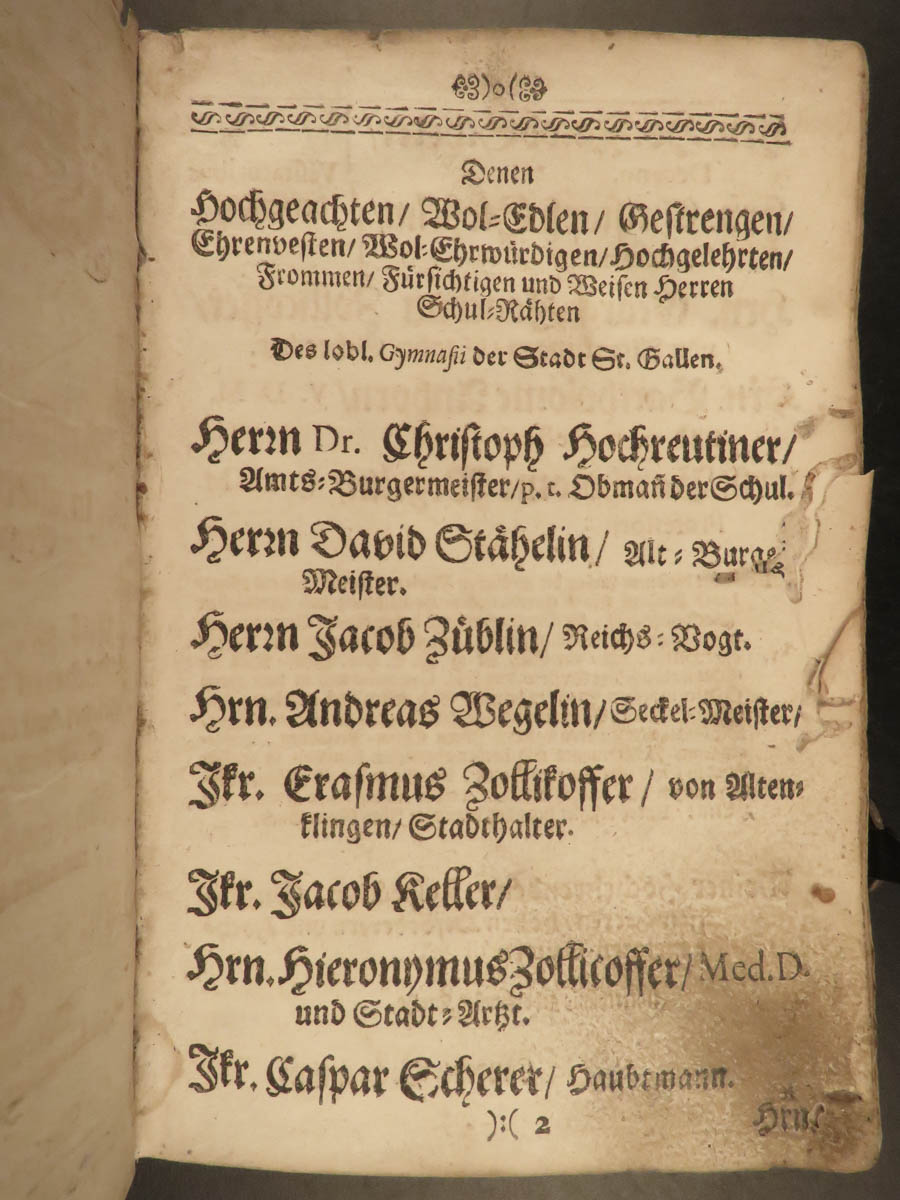 )o(
Denen
Hochgeachten/ Wol-Edlen/ Gestrengen/
Ehrenvesten/ Wol-Ehrwürdigen/ Hochgelehrten/
Frommen/ Fürsichtigen und Weisen Herren
Schul-Rähten
Des lobl. Gymnasii der Stadt St. Gallen.
Herrn Dr. Christoph Hochreutiner/
Amts-Burgermeister/ p. t. Obmañ der Schul.
Herrn David Stähelin/ Alt-Burge
Meister.
Herrn Jacob Züblin/ Reichs-Vogt.
Hrn. Andreas Wegelin/ Seckel-Meister/
Jkr. Erasmus Zollikoffer/ von Alten-
klingen/ Stadthalter.
Jkr. Jacob Keller/
Hrn. Hieronymus Zollicoffer/ Med. D.
und Stadt-Artzt.
Jkr. Caspar Scherer/ Haubtmann.
):( 2
Hrn.